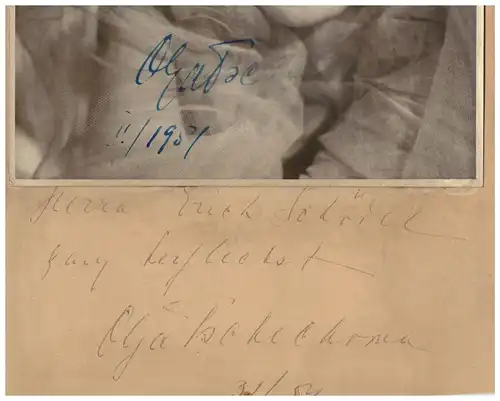 Olga Tsc
II/1951
Herrn Erich
ganz herzlichst
Olga Tschechowa